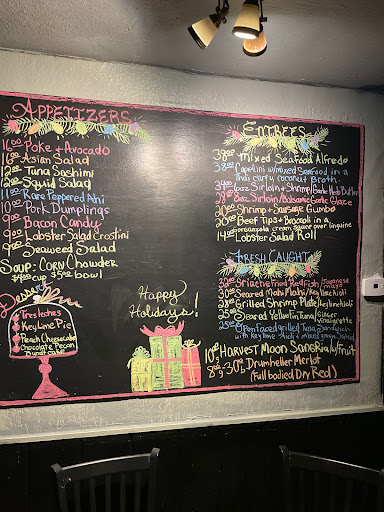 APPETIZERS
16.00 Poke + Avocado
16.00 Asian Salad
12.00 Tuna Sashimi
12.00 Squid Salad
11.00 Rare Peppered Ahi
10.00 Pork Dumplings
9.00 Bacon Candy
9.00 Lobster Salad Crostini
9.00 Seaweed Salad
SOUP: CORN CHOWDER
$4.00 cup 5.95 bowl
Dessert
Tres leches
Key Lime Pie
Peach Cheesecake
Chocolate Pecan
Happy
Holidays!
ENTREES
38.00 Mixed Seafood Alfredo
Capellini w/mixed Seafood in a
Thai curry coconut broth
Sirloin + Shrimp/Garlic Herb Butter
8oz Sirloin/Balsamic Garlic Glaze
Shrimp + Sausage Gumbo
Beef Tips + Broccoli in a
Gorgonzola cream sauce over linguine
14.00 Lobster Salad Roll
FRESH CAUGHT
Fried Red Fish/
30.00 Seared Mahi Mahi/Key lime Aioli
Grilled Shrimp Plate/Key lime Aioli
Seared Yellowfin Tuna/Ginger
Vinaigrette
Open faced grilled Tuna Sandwich
with Key lime Aioli + mixed greens
10.00 g HARVEST MOON SANGRIA w/Fruit
8.00 g-30 B Drumheller Merlot
(Full bodied Dry Red)